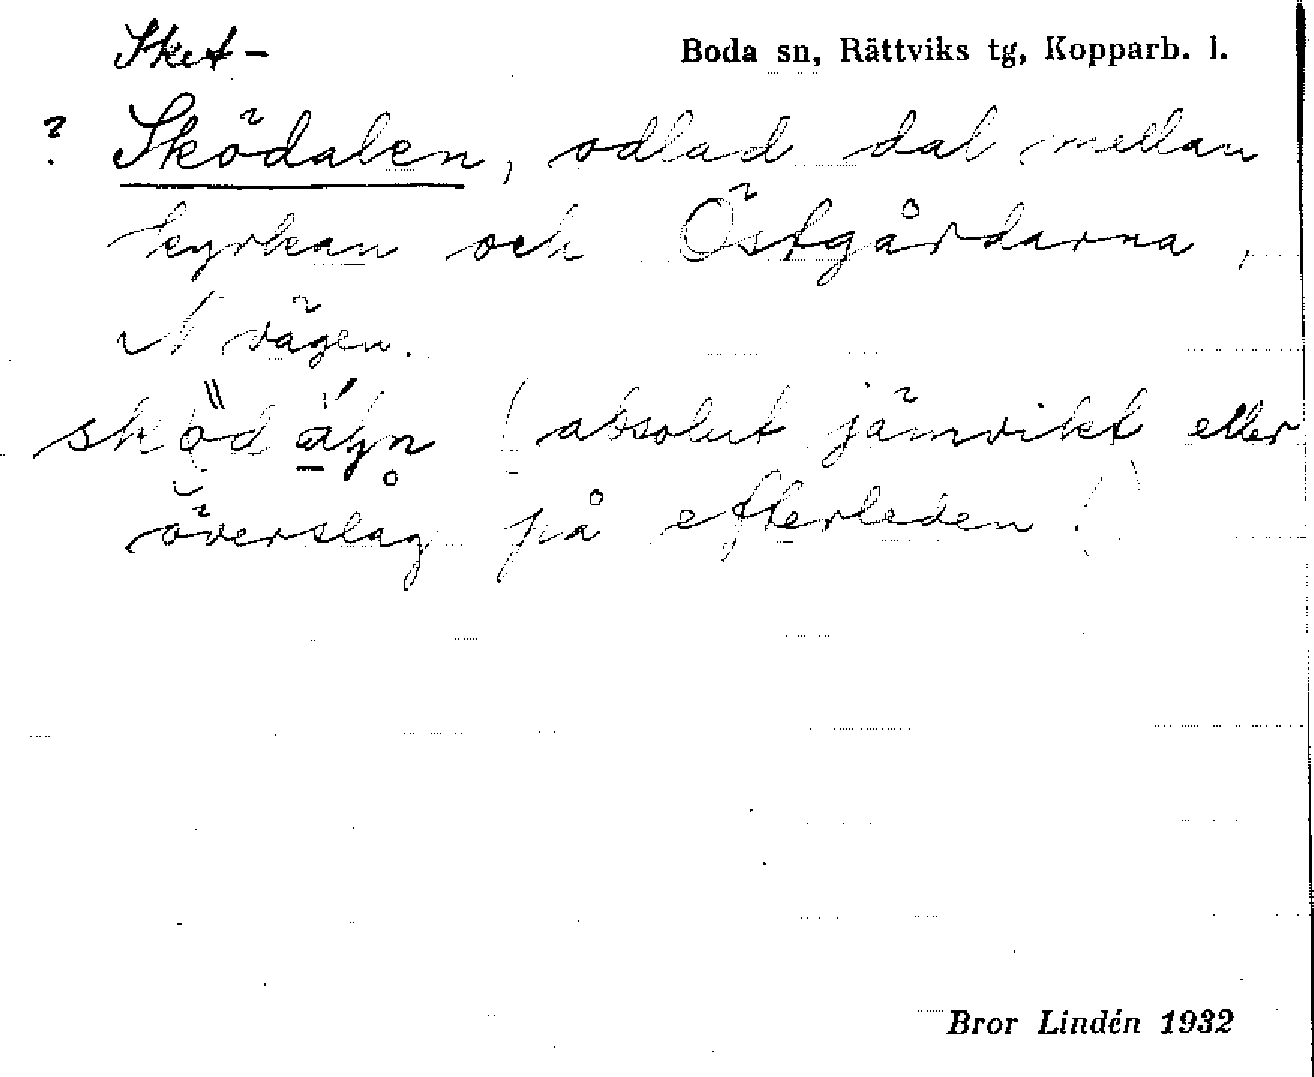 Sket-
Boda sn, Rättviks tg, Kopparb. l.
? Sködalen, odlad dal mellan
kyrkan och Östgårdarna,
N vägen.
(absolut jämvikt eller
överslag på efterleden!)
Bror Lindén 1932